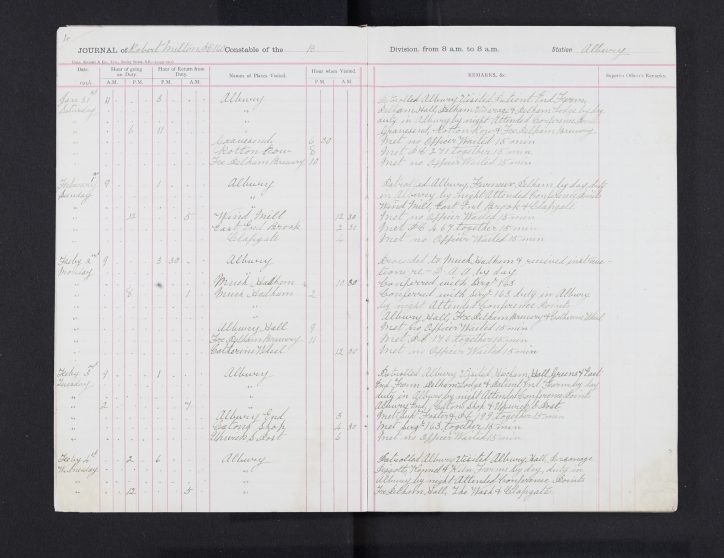 4
JOURNAL of Robert Constable of the B Division, from 8 a.m. to 8 a.m. Station Albury
Date. Hour of going on Duty. Hour of Return from Duty. Names of Places Visited. Hour when Visited. REMARKS, &c. Superior Officer's Remarks.
A.M. P.M. A.M. P.M. P.M. A.M.
Jany 31st 9 3 Albury Patrolled Albury Visited Patient End Farm,
Saturday " Pelham Hall, Pelham & Pelham Lodge by day
" " duty in Albury by night Attended Conference Points
" 6 11 " Gravesend, Rotton Row & Fxe Pelham Brewery
" Gravesend 6 30 Met no Officer Waited 15 min
" Rotton Row 8 Met P.C. 271 together 15 min
" Fxe Pelham Brewery 10 Met no Officer Waited 15 min
February 1st 9 1 Albury Patrolled Albury, Furneux Pelham by day, duty
Sunday " in Albury by night Attended Conference Points
" " Wind Mill, East End Brook & Clapgate
" 12 5 Wind Mill 12 30 Met no Officer Waited 15 min
" East End Brook 2 30 Met P.C. 67 together 15 min
" Clapgate 4 Met no Officer Waited 15 min
Feby 2nd 9 3 30 Albury Proceeded to Much Hadham & received instruc-
Monday " tions re D A A by day
" Much Hadham 10 30 Conferred with Sergt 163
" 8 1 Much Hadham 2 Conferred with Sergt 163 duty in Albury
" " by night Attended Conference Points
" " Albury Hall, Fxe Pelham Brewery & Catherine Wheel
" Albury Hall 9 Met no Officer Waited 15 min
" Fxe Pelham Brewery 11 Met P.C. 176 together 15 min
" Catherine Wheel 12 30 Met no Officer Waited 15 min
Feby 3rd 9 1 Albury Patrolled Albury Visited Hall, Greens & East
Tuesday " End Farm Pelham Lodge & Patient End Farm by day
" " duty in Albury by night Attended Conference Points
" 2 7 " Albury End, Catons Shop & Upwick S. Post
" Albury End 3 Met Supt Foster & P.C. 199 together 15 min
" Catons Shop 4 30 Met Sergt 163 together 15 min
" Upwick S. Post 6 Met no Officer Waited 15 min
Feby 4th 2 6 Albury Patrolled Albury Visited Albury Hall, Parsonage
Wednesday " Kennel & Kiln Farms by day, duty in
" " Albury by night Attended Conference Points
" 12 5 " Fxe Pelham Hall, The Wash & Clapgate